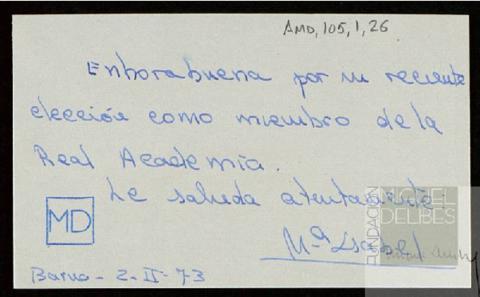 AMD, 105, 1, 26
Enhorabuena por su reciente
elección como miembro de la
Real Academia.
Le saluda atentamente
Mª Isabel
MD
Barna - 2-II-73
FUNDACIÓN
MIGUEL
DELIBES